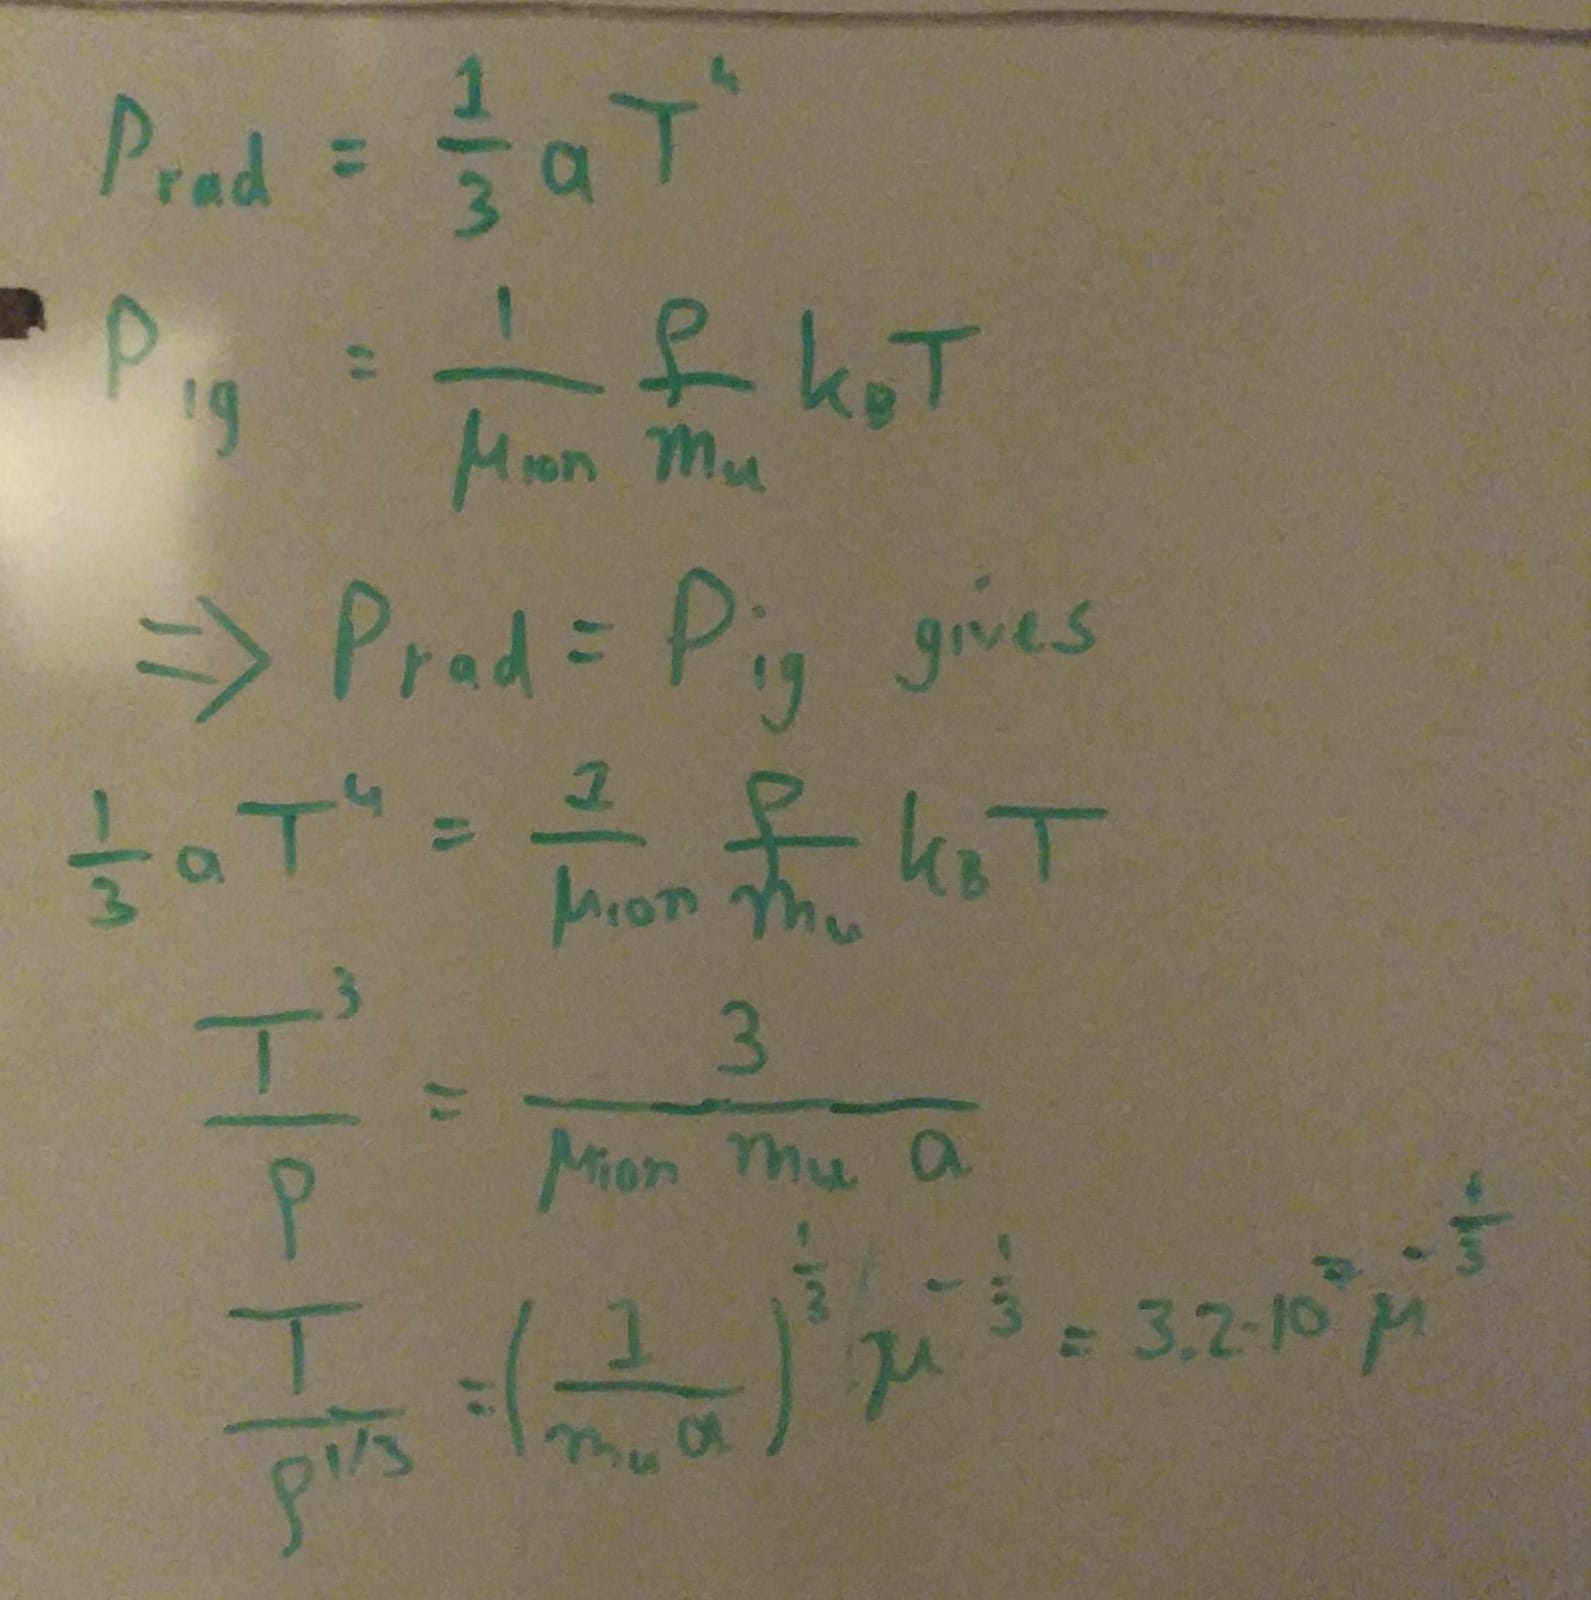 P_rad = 1/3 a T^4
P_ig = 1/μ_ion ρ/m_u k_B T
⇒ P_rad = P_ig gives
1/3 a T^4 = 1/μ_ion ρ/m_u k_B T
T^3/ρ = 3/(μ_ion m_u a)
T/ρ^1/3 = (1/(m_u a))^1/3 μ^-1/3 = 3.2·10^7 μ^-1/3